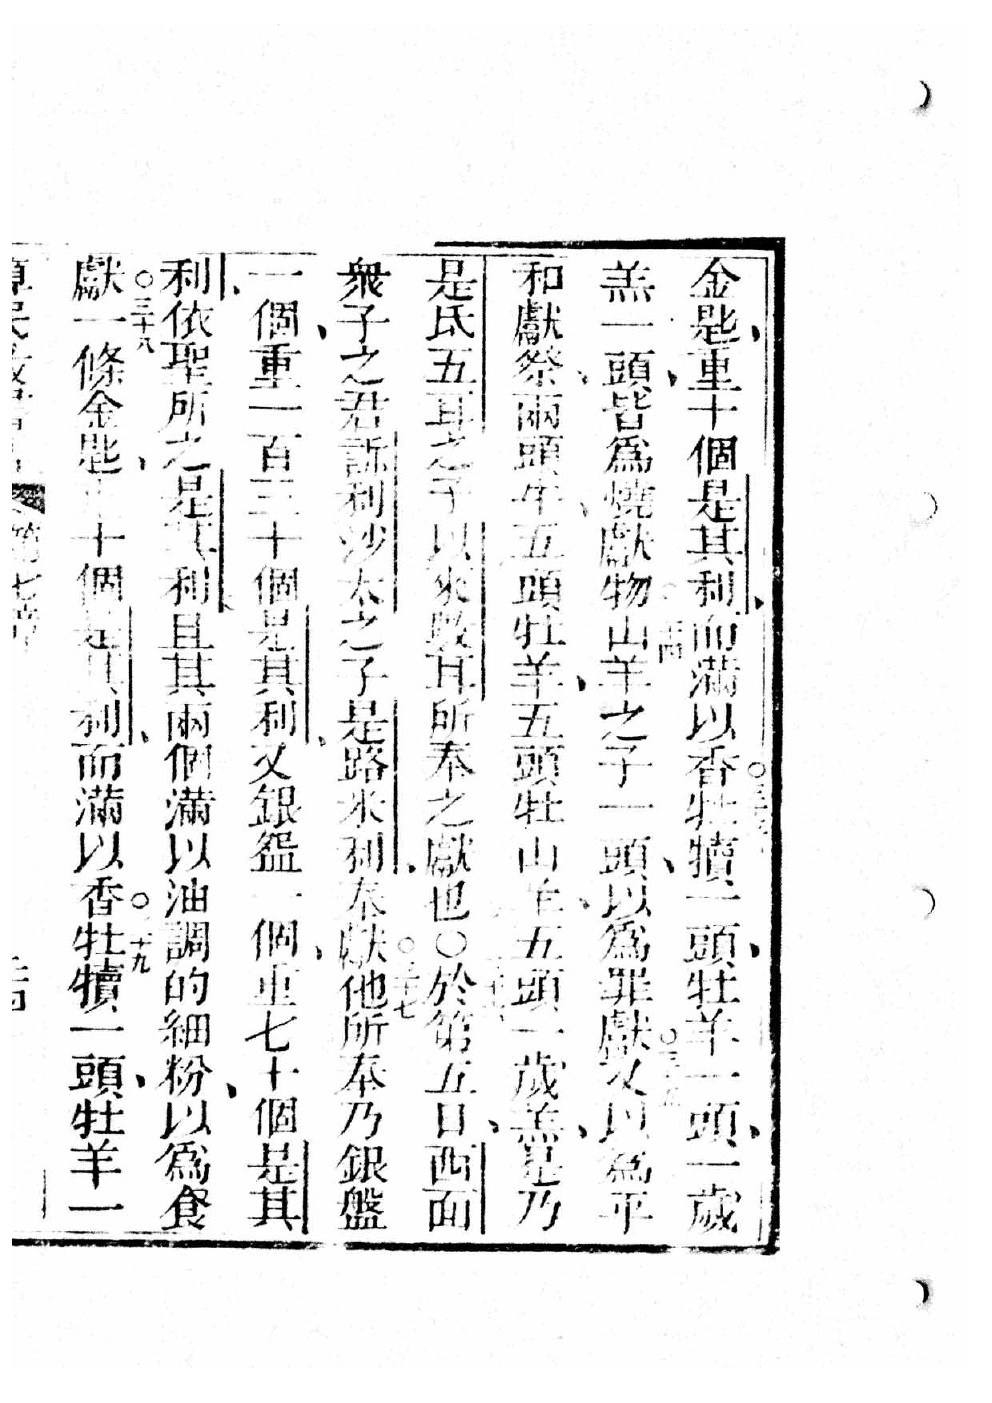 金匙重十個是其利而滿以香○三十三牡犢一頭牡羊一頭一歲
羔一頭皆為燒獻物○三十四山羊之子一頭以為罪獻○三十五又以為平
和獻祭兩頭牛五頭牡羊五頭牡山羊五頭一歲羔是乃
是氐五耳之子以來敢耳所奉之獻也○○三十六於第五日西面
衆子之君訴利沙太之子是路米利奉獻○三十七他所奉乃銀盤
一個重一百三十個是其利又銀盌一個重七十個是其
利依聖所之是其利且其兩個滿以油調的細粉以為食
獻○三十八一條金匙重十個是其利而滿以香○三十九牡犢一頭牡羊一
第七章